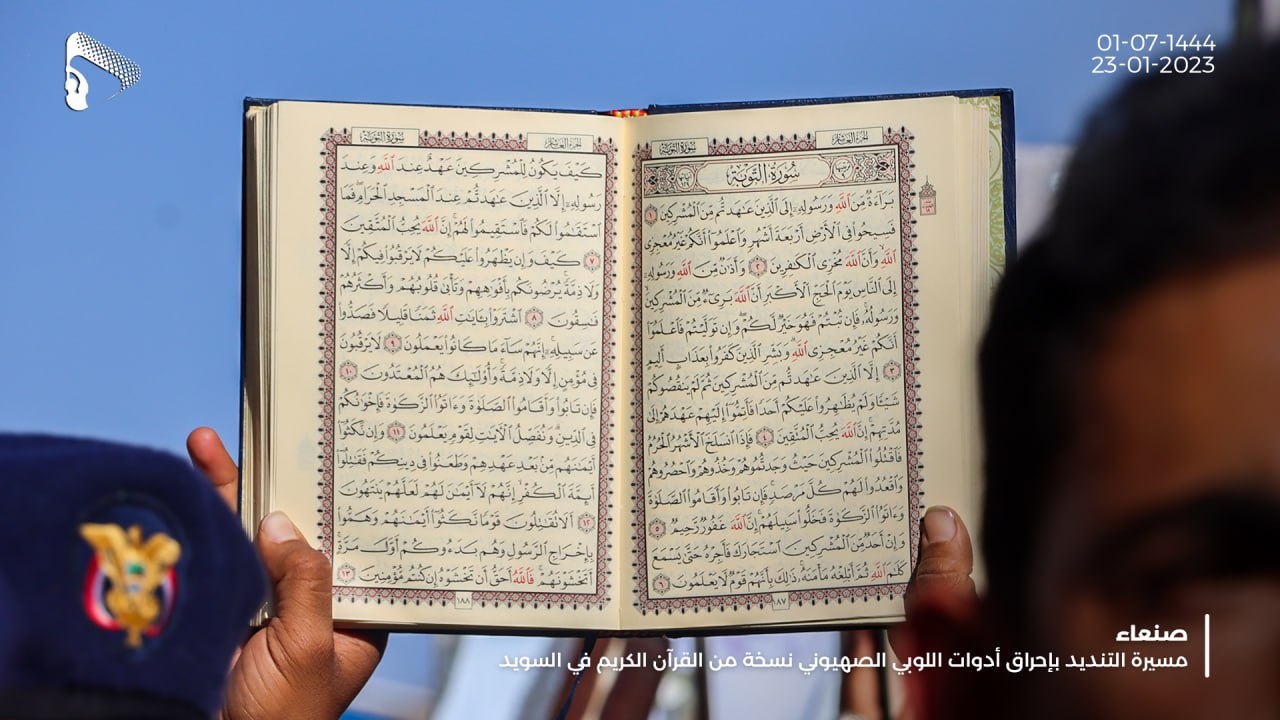 01-07-1444
23-01-2023
سورة التوبة
الجزء العاشر
سُورَةُ التَّوْبَةِ
بَرَآءَةٌ مِّنَ ٱللَّهِ وَرَسُولِهِۦٓ إِلَى ٱلَّذِينَ عَٰهَدتُّم مِّنَ ٱلْمُشْرِكِينَ ١
فَسِيحُوا۟ فِى ٱلْأَرْضِ أَرْبَعَةَ أَشْهُرٍ وَٱعْلَمُوٓا۟ أَنَّكُمْ غَيْرُ مُعْجِزِى
ٱللَّهِ وَأَنَّ ٱللَّهَ مُخْزِى ٱلْكَٰفِرِينَ ٢ وَأَذَٰنٌ مِّنَ ٱللَّهِ وَرَسُولِهِۦٓ
إِلَى ٱلنَّاسِ يَوْمَ ٱلْحَجِّ ٱلْأَكْبَرِ أَنَّ ٱللَّهَ بَرِىٓءٌ مِّنَ ٱلْمُشْرِكِينَ
وَرَسُولُهُۥ فَإِن تُبْتُمْ فَهُوَ خَيْرٌ لَّكُمْ وَإِن تَوَلَّيْتُمْ فَٱعْلَمُوٓا۟
أَنَّكُمْ غَيْرُ مُعْجِزِى ٱللَّهِ وَبَشِّرِ ٱلَّذِينَ كَفَرُوا۟ بِعَذَابٍ أَلِيمٍ
٣ إِلَّا ٱلَّذِينَ عَٰهَدتُّم مِّنَ ٱلْمُشْرِكِينَ ثُمَّ لَمْ يَنقُصُوكُمْ
شَيْـًٔا وَلَمْ يُظَٰهِرُوا۟ عَلَيْكُمْ أَحَدًا فَأَتِمُّوٓا۟ إِلَيْهِمْ عَهْدَهُمْ إِلَىٰ
مُدَّتِهِمْ إِنَّ ٱللَّهَ يُحِبُّ ٱلْمُتَّقِينَ ٤ فَإِذَا ٱنسَلَخَ ٱلْأَشْهُرُ ٱلْحُرُمُ
فَٱقْتُلُوا۟ ٱلْمُشْرِكِينَ حَيْثُ وَجَدتُّمُوهُمْ وَخُذُوهُمْ وَٱحْصُرُوهُمْ
وَٱقْعُدُوا۟ لَهُمْ كُلَّ مَرْصَدٍ فَإِن تَابُوا۟ وَأَقَامُوا۟ ٱلصَّلَوٰةَ
وَءَاتَوُا۟ ٱلزَّكَوٰةَ فَخَلُّوا۟ سَبِيلَهُمْ إِنَّ ٱللَّهَ غَفُورٌ رَّحِيمٌ ٥
وَإِنْ أَحَدٌ مِّنَ ٱلْمُشْرِكِينَ ٱسْتَجَارَكَ فَأَجِرْهُ حَتَّىٰ يَسْمَعَ
كَلَٰمَ ٱللَّهِ ثُمَّ أَبْلِغْهُ مَأْمَنَهُۥ ذَٰلِكَ بِأَنَّهُمْ قَوْمٌ لَّا يَعْلَمُونَ ٦
١٨٧
سورة التوبة
الجزء العاشر
كَيْفَ يَكُونُ لِلْمُشْرِكِينَ عَهْدٌ عِندَ ٱللَّهِ وَعِندَ
رَسُولِهِۦٓ إِلَّا ٱلَّذِينَ عَٰهَدتُّمْ عِندَ ٱلْمَسْجِدِ ٱلْحَرَامِ فَمَا
ٱسْتَقَٰمُوا۟ لَكُمْ فَٱسْتَقِيمُوا۟ لَهُمْ إِنَّ ٱللَّهَ يُحِبُّ ٱلْمُتَّقِينَ
٧ كَيْفَ وَإِن يَظْهَرُوا۟ عَلَيْكُمْ لَا يَرْقُبُوا۟ فِيكُمْ إِلًّا
وَلَا ذِمَّةً يُرْضُونَكُم بِأَفْوَٰهِهِمْ وَتَأْبَىٰ قُلُوبُهُمْ وَأَكْثَرُهُمْ
فَٰسِقُونَ ٨ ٱشْتَرَوْا۟ بِـَٔايَٰتِ ٱللَّهِ ثَمَنًا قَلِيلًا فَصَدُّوا۟
عَن سَبِيلِهِۦٓ إِنَّهُمْ سَآءَ مَا كَانُوا۟ يَعْمَلُونَ ٩ لَا يَرْقُبُونَ
فِى مُؤْمِنٍ إِلًّا وَلَا ذِمَّةً وَأُو۟لَٰٓئِكَ هُمُ ٱلْمُعْتَدُونَ ١٠
فَإِن تَابُوا۟ وَأَقَامُوا۟ ٱلصَّلَوٰةَ وَءَاتَوُا۟ ٱلزَّكَوٰةَ فَإِخْوَٰنُكُمْ
فِى ٱلدِّينِ وَنُفَصِّلُ ٱلْـَٔايَٰتِ لِقَوْمٍ يَعْلَمُونَ ١١ وَإِن نَّكَثُوٓا۟
أَيْمَٰنَهُم مِّنۢ بَعْدِ عَهْدِهِمْ وَطَعَنُوا۟ فِى دِينِكُمْ فَقَٰتِلُوٓا۟
أَئِمَّةَ ٱلْكُفْرِ إِنَّهُمْ لَآ أَيْمَٰنَ لَهُمْ لَعَلَّهُمْ يَنتَهُونَ
١٢ أَلَا تُقَٰتِلُونَ قَوْمًا نَّكَثُوٓا۟ أَيْمَٰنَهُمْ وَهَمُّوا۟
بِإِخْرَاجِ ٱلرَّسُولِ وَهُم بَدَءُوكُمْ أَوَّلَ مَرَّةٍ
أَتَخْشَوْنَهُمْ فَٱللَّهُ أَحَقُّ أَن تَخْشَوْهُ إِن كُنتُم مُّؤْمِنِينَ ١٣
١٨٨
صنعاء
مسيرة التنديد بإحراق أدوات اللوبي الصهيوني نسخة من القرآن الكريم في السويد